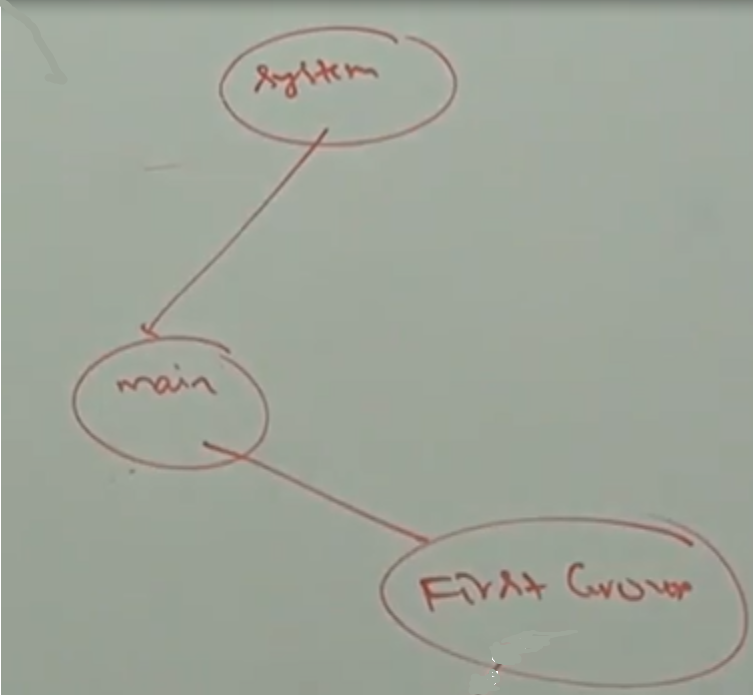 system
main
First Group